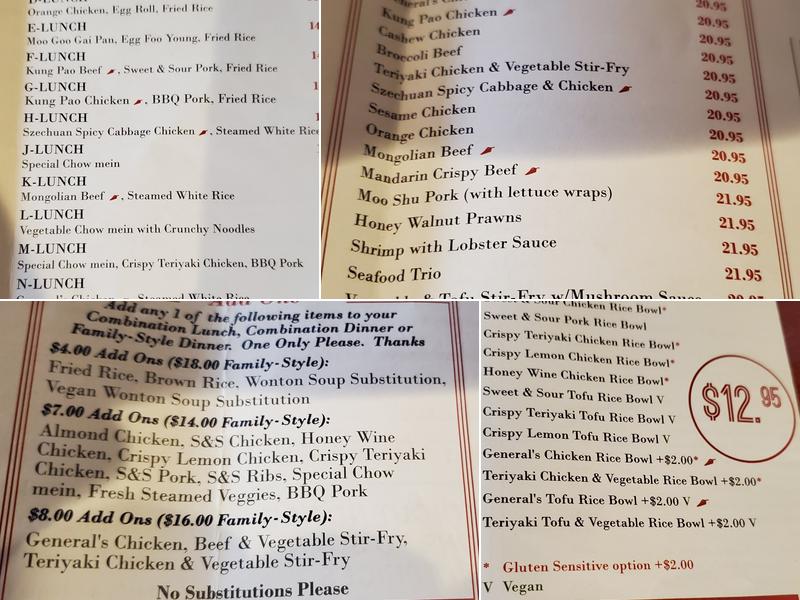 D-LUNCH
Orange Chicken, Egg Roll, Fried Rice
E-LUNCH
Moo Goo Gai Pan, Egg Foo Young, Fried Rice
F-LUNCH
Kung Pao Beef , Sweet & Sour Pork, Fried Rice
G-LUNCH
Kung Pao Chicken , BBQ Pork, Fried Rice
H-LUNCH
Szechuan Spicy Cabbage Chicken , Steamed White Rice
J-LUNCH
Special Chow mein
K-LUNCH
Mongolian Beef , Steamed White Rice
L-LUNCH
Vegetable Chow mein with Crunchy Noodles
M-LUNCH
Special Chow mein, Crispy Teriyaki Chicken, BBQ Pork
N-LUNCH
General's Chicken , Steamed White Rice
General's Chicken 20.95
Kung Pao Chicken 20.95
Cashew Chicken 20.95
Broccoli Beef 20.95
Teriyaki Chicken & Vegetable Stir-Fry 20.95
Szechuan Spicy Cabbage & Chicken 20.95
Sesame Chicken 20.95
Orange Chicken 20.95
Mongolian Beef 20.95
Mandarin Crispy Beef 20.95
Moo Shu Pork (with lettuce wraps) 21.95
Honey Walnut Prawns 21.95
Shrimp with Lobster Sauce 21.95
Seafood Trio 21.95
Vegetable & Tofu Stir-Fry w/Mushroom Sauce 20.95
Add One
Add any 1 of the following items to your
Combination Lunch, Combination Dinner or
Family-Style Dinner. One Only Please. Thanks
$4.00 Add Ons ($18.00 Family-Style):
Fried Rice, Brown Rice, Wonton Soup Substitution,
Vegan Wonton Soup Substitution
$7.00 Add Ons ($14.00 Family-Style):
Almond Chicken, S&S Chicken, Honey Wine
Chicken, Crispy Lemon Chicken, Crispy Teriyaki
Chicken, S&S Pork, S&S Ribs, Special Chow
mein, Fresh Steamed Veggies, BBQ Pork
$8.00 Add Ons ($16.00 Family-Style):
General's Chicken, Beef & Vegetable Stir-Fry,
Teriyaki Chicken & Vegetable Stir-Fry
No Substitutions Please
Sour Chicken Rice Bowl*
Sweet & Sour Pork Rice Bowl
Crispy Teriyaki Chicken Rice Bowl*
Crispy Lemon Chicken Rice Bowl*
Honey Wine Chicken Rice Bowl*
Sweet & Sour Tofu Rice Bowl V
Crispy Teriyaki Tofu Rice Bowl V
Crispy Lemon Tofu Rice Bowl V
General's Chicken Rice Bowl +$2.00*
Teriyaki Chicken & Vegetable Rice Bowl +$2.00*
General's Tofu Rice Bowl +$2.00 V
Teriyaki Tofu & Vegetable Rice Bowl +$2.00 V
$12.95
* Gluten Sensitive option +$2.00
V Vegan